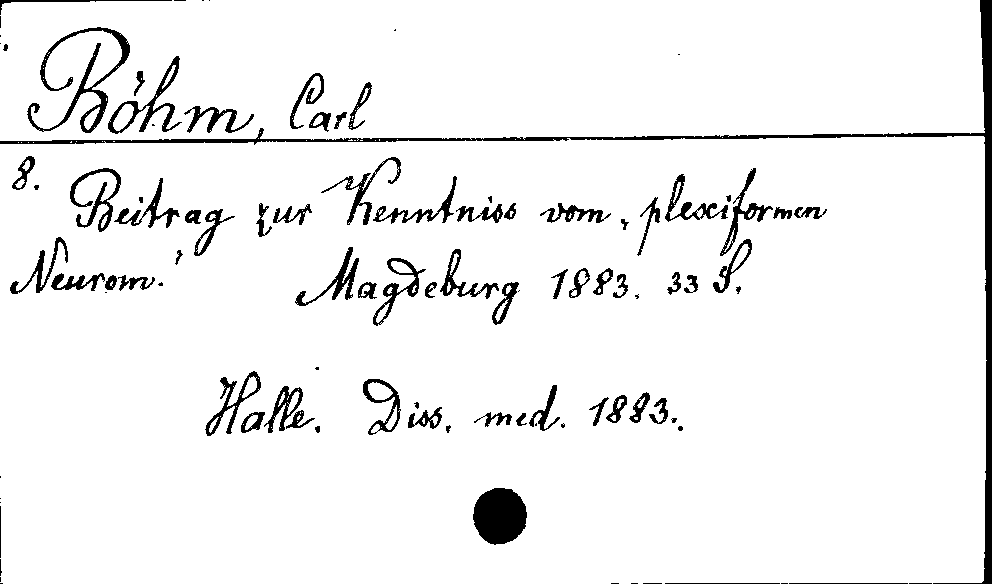 Böhm, Carl
8.
Beitrag zur Kenntniss vom „plexiformen
Neurom.“ Magdeburg 1883. 33 S.
Halle. Diss. med. 1883.